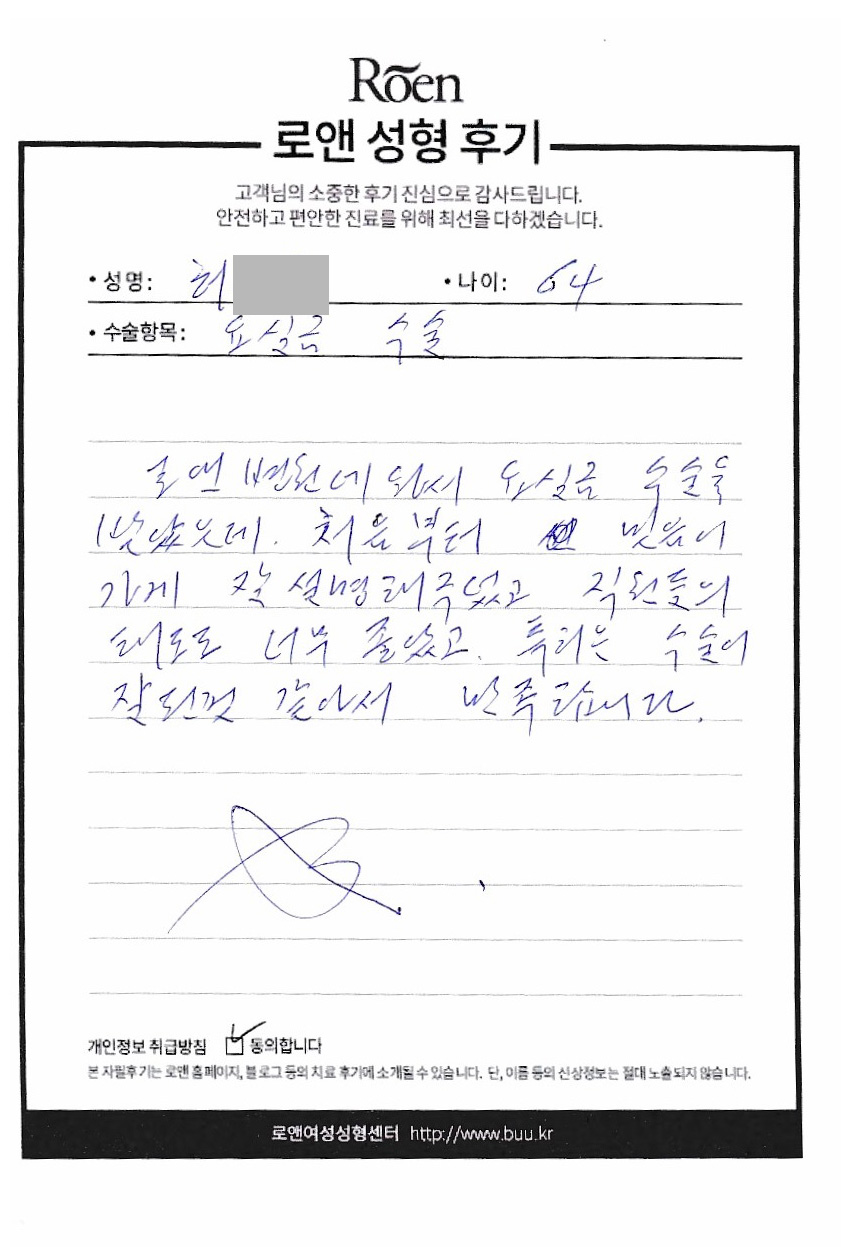 Rõen
로앤 성형 후기
고객님의 소중한 후기 진심으로 감사드립니다.
안전하고 편안한 진료를 위해 최선을 다하겠습니다.
• 성명: 허 • 나이: 64
• 수술항목: 요실금 수술
로앤 병원에 와서 요실금 수술을
받았는데. 처음부터 믿음이
가게 잘 설명해주었고 직원들의
태도도 너무 좋았고. 특히는 수술이
잘 된것 같아서 만족합니다.
개인정보 취급방침 동의합니다
본 자필후기는 로앤 홈페이지, 블로그 등의 치료 후기에 소개될 수 있습니다. 단, 이름 등의 신상정보는 절대 노출되지 않습니다.
로앤여성성형센터 http://www.buu.kr